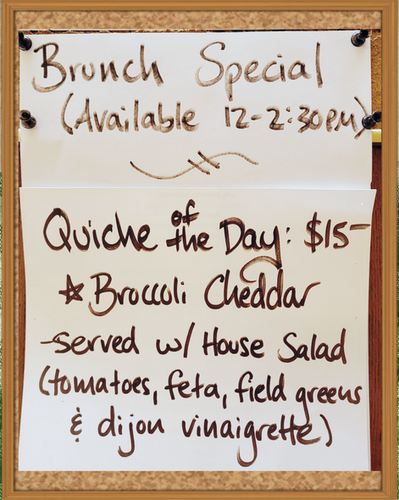 Brunch Special
(Available 12-2:30PM)
Quiche of the Day: $15-
☆ Broccoli Cheddar
-served w/ House Salad
(tomatoes, feta, field greens
& dijon vinaigrette)